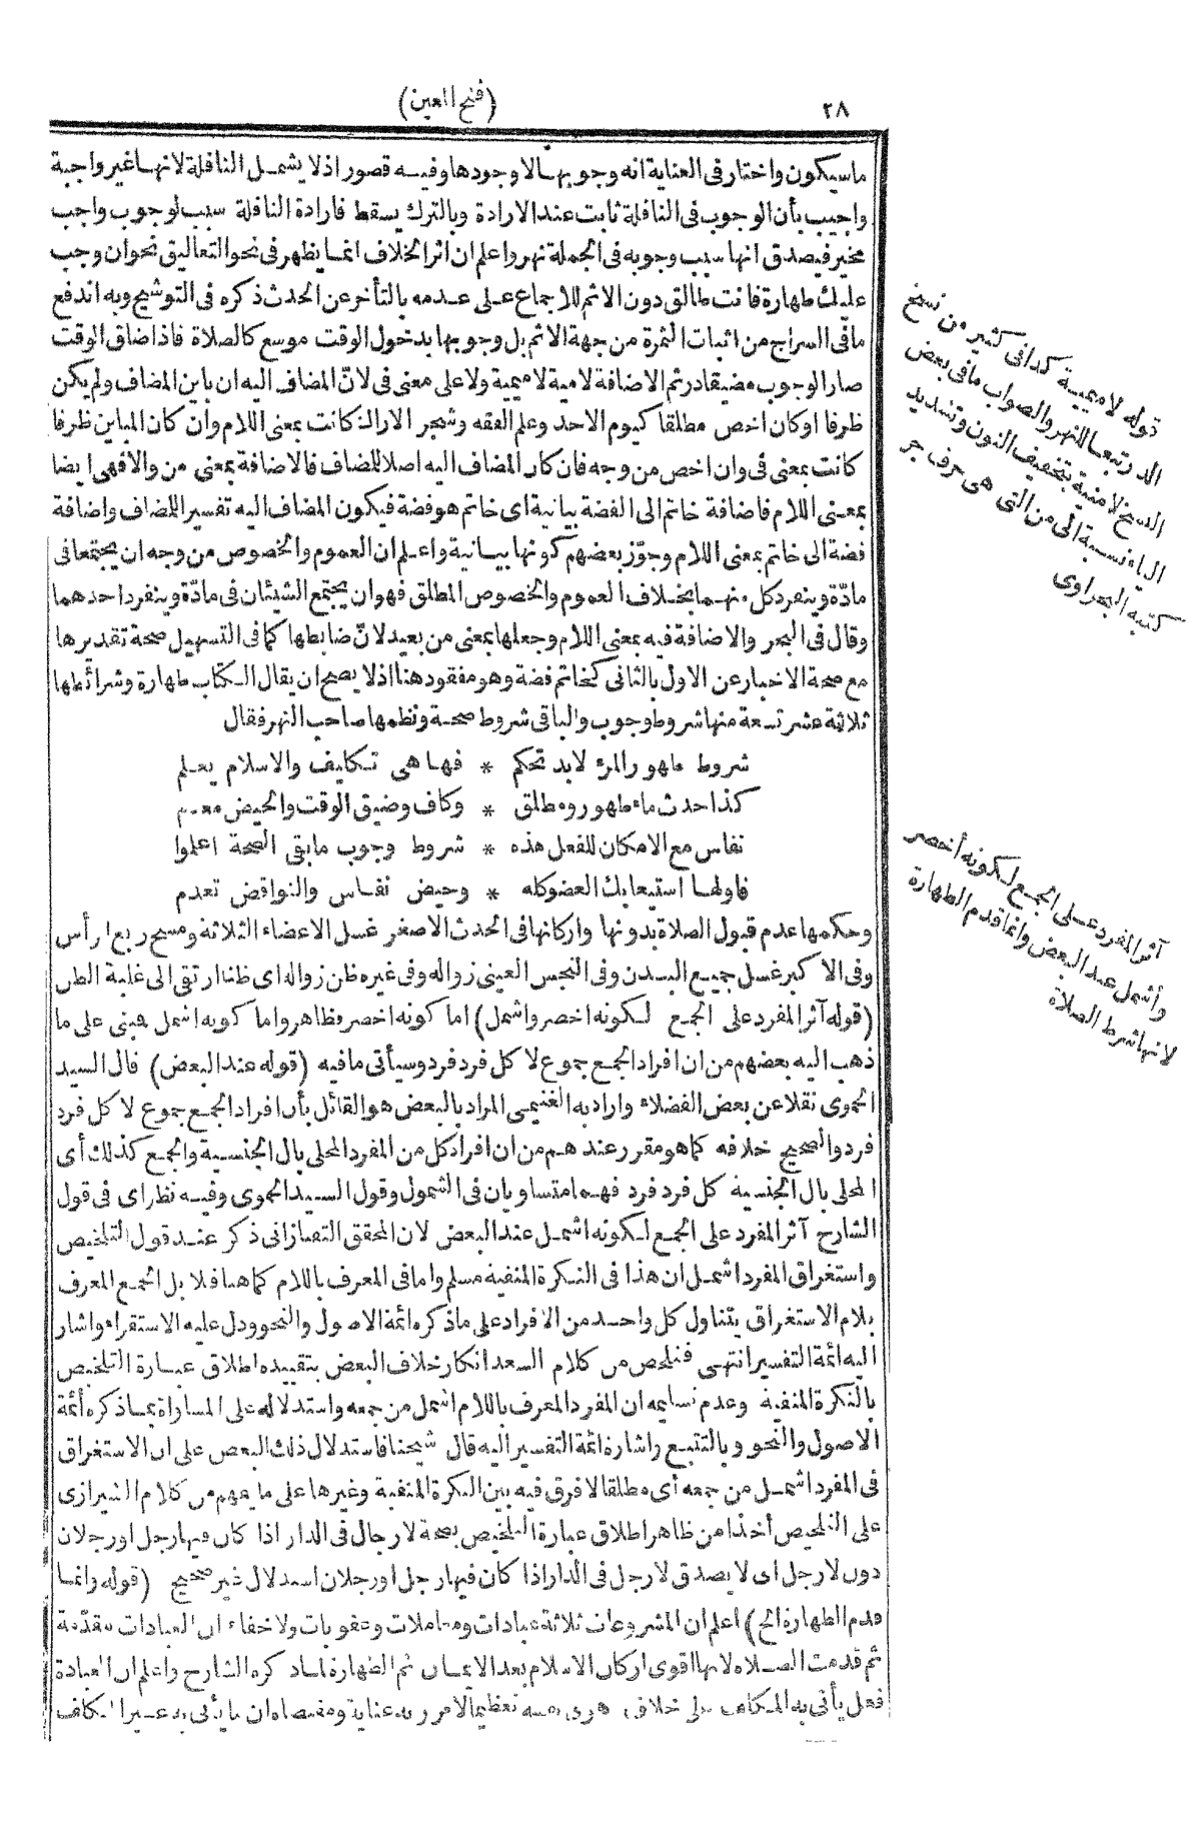 ٢٨
(فتح المعين)
ماسيكون واختار فى العناية انه وجوبها لا وجودها وفيه قصور اذ لا يشمل النافلة لانها غير واجبة
واجيب بأن الوجوب فى النافلة ثابت عند الارادة وبالترك يسقط فارادة النافلة سبب لوجوب واجب
مخير فيصدق انها سبب وجوبه فى الجملة نهر واعلم ان اثر الخلاف انما يظهر فى نحو التعاليق نحو ان وجب
عليك طهارة فانت طالق دون الاثم للاجماع على عدمه بالتأخر عن الحدث ذكره فى التوشيح وبه اندفع
مافى السراج من اثبات الثمرة من جهة الاثم بل وجوبها بدخول الوقت موسع كالصلاة فاذا ضاق الوقت
صار الوجوب مضيقا در ثم الاضافة لامية لا ميمية ولا على معنى فى لانّ المضاف اليه ان باين المضاف ولم يكن
ظرفا اوكان اخص مطلقا كيوم الاحد وعلم الفقه وشجر الاراك كانت بمعنى اللام وان كان المباين ظرفا
كانت بمعنى فى وان اخص من وجه فان كان المضاف اليه اصلا للمضاف فالاضافة بمعنى من والا فهى ايضا
بمعنى اللام فاضافة خاتم الى الفضة بيانية اى خاتم هو فضة فيكون المضاف اليه تفسيرا للمضاف واضافة
فضة الى خاتم بمعنى اللام وجوّز بعضهم كونها بيانية واعلم ان العموم والخصوص من وجه ان يجتمعا فى
مادّة وينفرد كل منهما بخلاف العموم والخصوص المطلق فهو ان يجتمع الشيئان فى مادّة وينفرد احدهما
وقال فى البحر والاضافة فيه بمعنى اللام وجعلها بمعنى من بعيد لانّ ضابطها كما فى التسهيل صحة تقديرها
مع صحة الاخبار عن الاول بالثانى كخاتم فضة وهو مفقود هنا اذ لا يصح ان يقال الكتاب طهارة وشرائطها
ثلاثة عشر تسعة منها شروط وجوب والباقى شروط صحة ونظمها صاحب النهر فقال
شروط طهور المرء لابد تحكم * فها هى تكليف والاسلام يعلم
كذا حدث ماء طهور ومطلق * وكاف وضيق الوقت والحيض معدم
نفاس مع الامكان للفعل هذه * شروط وجوب مابقى الصحة اعلموا
فاولها استيعابك العضو كله * وحيض نفاس والنواقض تعدم
وحكمها عدم قبول الصلاة بدونها واركانها فى الحدث الاصغر غسل الاعضاء الثلاثة ومسح ربع الرأس
وفى الاكبر غسل جميع البدن وفى النجس العينى زواله وفى غيره ظن زواله اى ظنا ارتقى الى غلبة الظن
(قوله آثر المفرد على الجمع لكونه اخصر واشمل) اما كونه اخصر فظاهر واما كونه اشمل فبنى على ما
ذهب اليه بعضهم من ان افراد الجمع جموع لا كل فرد فرد وسيأتى مافيه (قوله عند البعض) قال السيد
الحموى نقلا عن بعض الفضلاء واراد به الغنيمى المراد بالبعض هو القائل بأن افراد الجمع جموع لا كل فرد
فرد والصحيح خلافه كما هو مقرر عندهم من ان افراد كل من المفرد المحلى بال الجنسية والجمع كذلك أى
المحلى بال الجنسية كل فرد فرد فهما متساويان فى الشمول وقول السيد الحموى وفيه نظر اى فى قول
الشارح آثر المفرد على الجمع لكونه اشمل عند البعض لان المحقق التفتازانى ذكر عند قول التلخيص
واستغراق المفرد اشمل ان هذا فى النكرة المنفية مسلم واما فى المعرف باللام كما هنا فلا بل الجمع المعرف
بلام الاستغراق يتناول كل واحد من الافراد على ماذكره ائمة الاصول والنحو ودل عليه الاستقراء واشار
اليه ائمة التفسير انتهى فتلخص من كلام السعد انكار خلاف البعض بتقييده اطلاق عبارة التلخيص
بالنكرة المنفية وعدم تسليمه ان المفرد المعرف باللام اشمل من جمعه واستدلاله على المساواة بما ذكره أئمة
الاصول والنحو وبالتتبع واشارة ائمة التفسير اليه قال شيخنا فاستدلال ذلك البعض على ان الاستغراق
فى المفرد اشمل من جمعه أى مطلقا لافرق فيه بين النكرة المنفية وغيرها على ما يفهم من كلام الشيرازى
على التلخيص أخذا من ظاهر اطلاق عبارة التلخيص بصحة لا رجال فى الدار اذا كان فيها رجل او رجلان
دون لا رجل اى لا يصدق لا رجل فى الدار اذا كان فيها رجل او رجلان استدلال غير صحيح (قوله وانما
قدم الطهارة الخ) اعلم ان المشروعات ثلاثة عبادات ومعاملات وعقوبات ولا خفاء ان العبادات مقدّمة
ثم قدمت الصلاة لانها اقوى اركان الاسلام بعد الايمان ثم الطهارة لما ذكره الشارح واعلم ان العبادة
فعل يأتى به المكلف على خلاف هوى نفسه تعظيما لامر ربه عناية ومقتضاه ان ما يأتى به غير المكلف
قوله لا ميمية كذا فى كثير من نسخ
الدر تبعا للنهر والصواب مافى بعض
النسخ لا منية بتخفيف النون وتشديد
الياء نسبة الى من التى هى حرف جر
كتبه البحراوى
آثر المفرد على الجمع لكونه أخصر
وأشمل عند البعض وانما قدم الطهارة
لانها شرط الصلاة